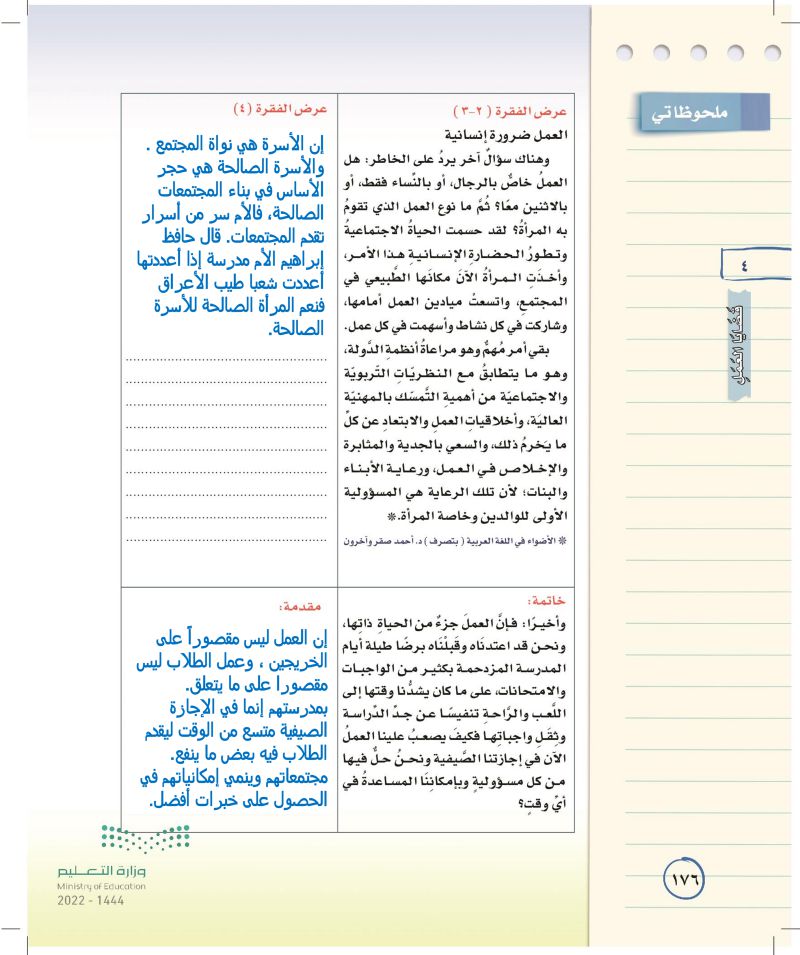 ملحوظاتي
٤
قضايا العمل
عرض الفقرة ( ٢-٣ )
العمل ضرورة إنسانية
وهناك سؤالٌ آخر يردُ على الخاطر: هل
العملُ خاصٌّ بالرجال، أو بالنِّساء فقط، أو
بالاثنين معًا؟ ثُمَّ ما نوع العمل الذي تقومُ
به المرأةُ؟ لقد حسمت الحياةُ الاجتماعيةُ
وتطورُ الحضارةِ الإنسانيةِ هذا الأمر،
وأخذَتِ المرأةُ الآنَ مكانَها الطَّبيعي في
المجتمعِ، واتسعتْ ميادين العمل أمامها،
وشاركت في كل نشاط وأسهمت في كل عمل.
بقي أمر مُهمٌّ وهو مراعاةُ أنظمةِ الدَّولة،
وهو ما يتطابقُ مع النظريّاتِ التَّربويّة
والاجتماعيّة من أهميةِ التَّمسّك بالمهنيّة
العاليَة، وأخلاقياتِ العملِ والابتعادِ عن كلِّ
ما يَخرمُ ذلك، والسعي بالجدية والمثابرة
والإخلاص في العمل، ورعاية الأبناء
والبنات؛ لأن تلك الرعاية هي المسؤولية
الأولى للوالدين وخاصة المرأة.*
* الأضواء في اللغة العربية ( بتصرف ) د. أحمد صقر وآخرون
عرض الفقرة (٤)
إن الأسرة هي نواة المجتمع .
والأسرة الصالحة هي حجر
الأساس في بناء المجتمعات
الصالحة، فالأم سر من أسرار
تقدم المجتمعات. قال حافظ
إبراهيم الأم مدرسة إذا أعددتها
أعددت شعبا طيب الأعراق
فنعم المرأة الصالحة للأسرة
الصالحة.
خاتمة:
وأخيرًا: فإنَّ العملَ جزءٌ من الحياةِ ذاتِها،
ونحن قد اعتدنَاه وقَبلْنَاه برضًا طيلة أيام
المدرسة المزدحمة بكثير من الواجبات
والامتحانات، على ما كان يشدُّنا وقتها إلى
اللَّعب والرَّاحةِ تنفيسًا عن جدِّ الدِّراسة
وثِقَلِ واجباتِها فكيفَ يصعبُ علينا العملُ
الآن في إجازتنا الصَّيفية ونحنُ حلٌّ فيها
من كل مسؤوليةٍ وبإمكاننَا المساعدةُ في
أيِّ وقتٍ؟
مقدمة:
إن العمل ليس مقصوراً على
الخريجين ، وعمل الطلاب ليس
مقصورا على ما يتعلق.
بمدرستهم إنما في الإجازة
الصيفية متسع من الوقت ليقدم
الطلاب فيه بعض ما ينفع.
مجتمعاتهم وينمي إمكانياتهم في
الحصول على خبرات أفضل.
وزارة التعليم
Ministry of Education
2022 - 1444
١٧٦